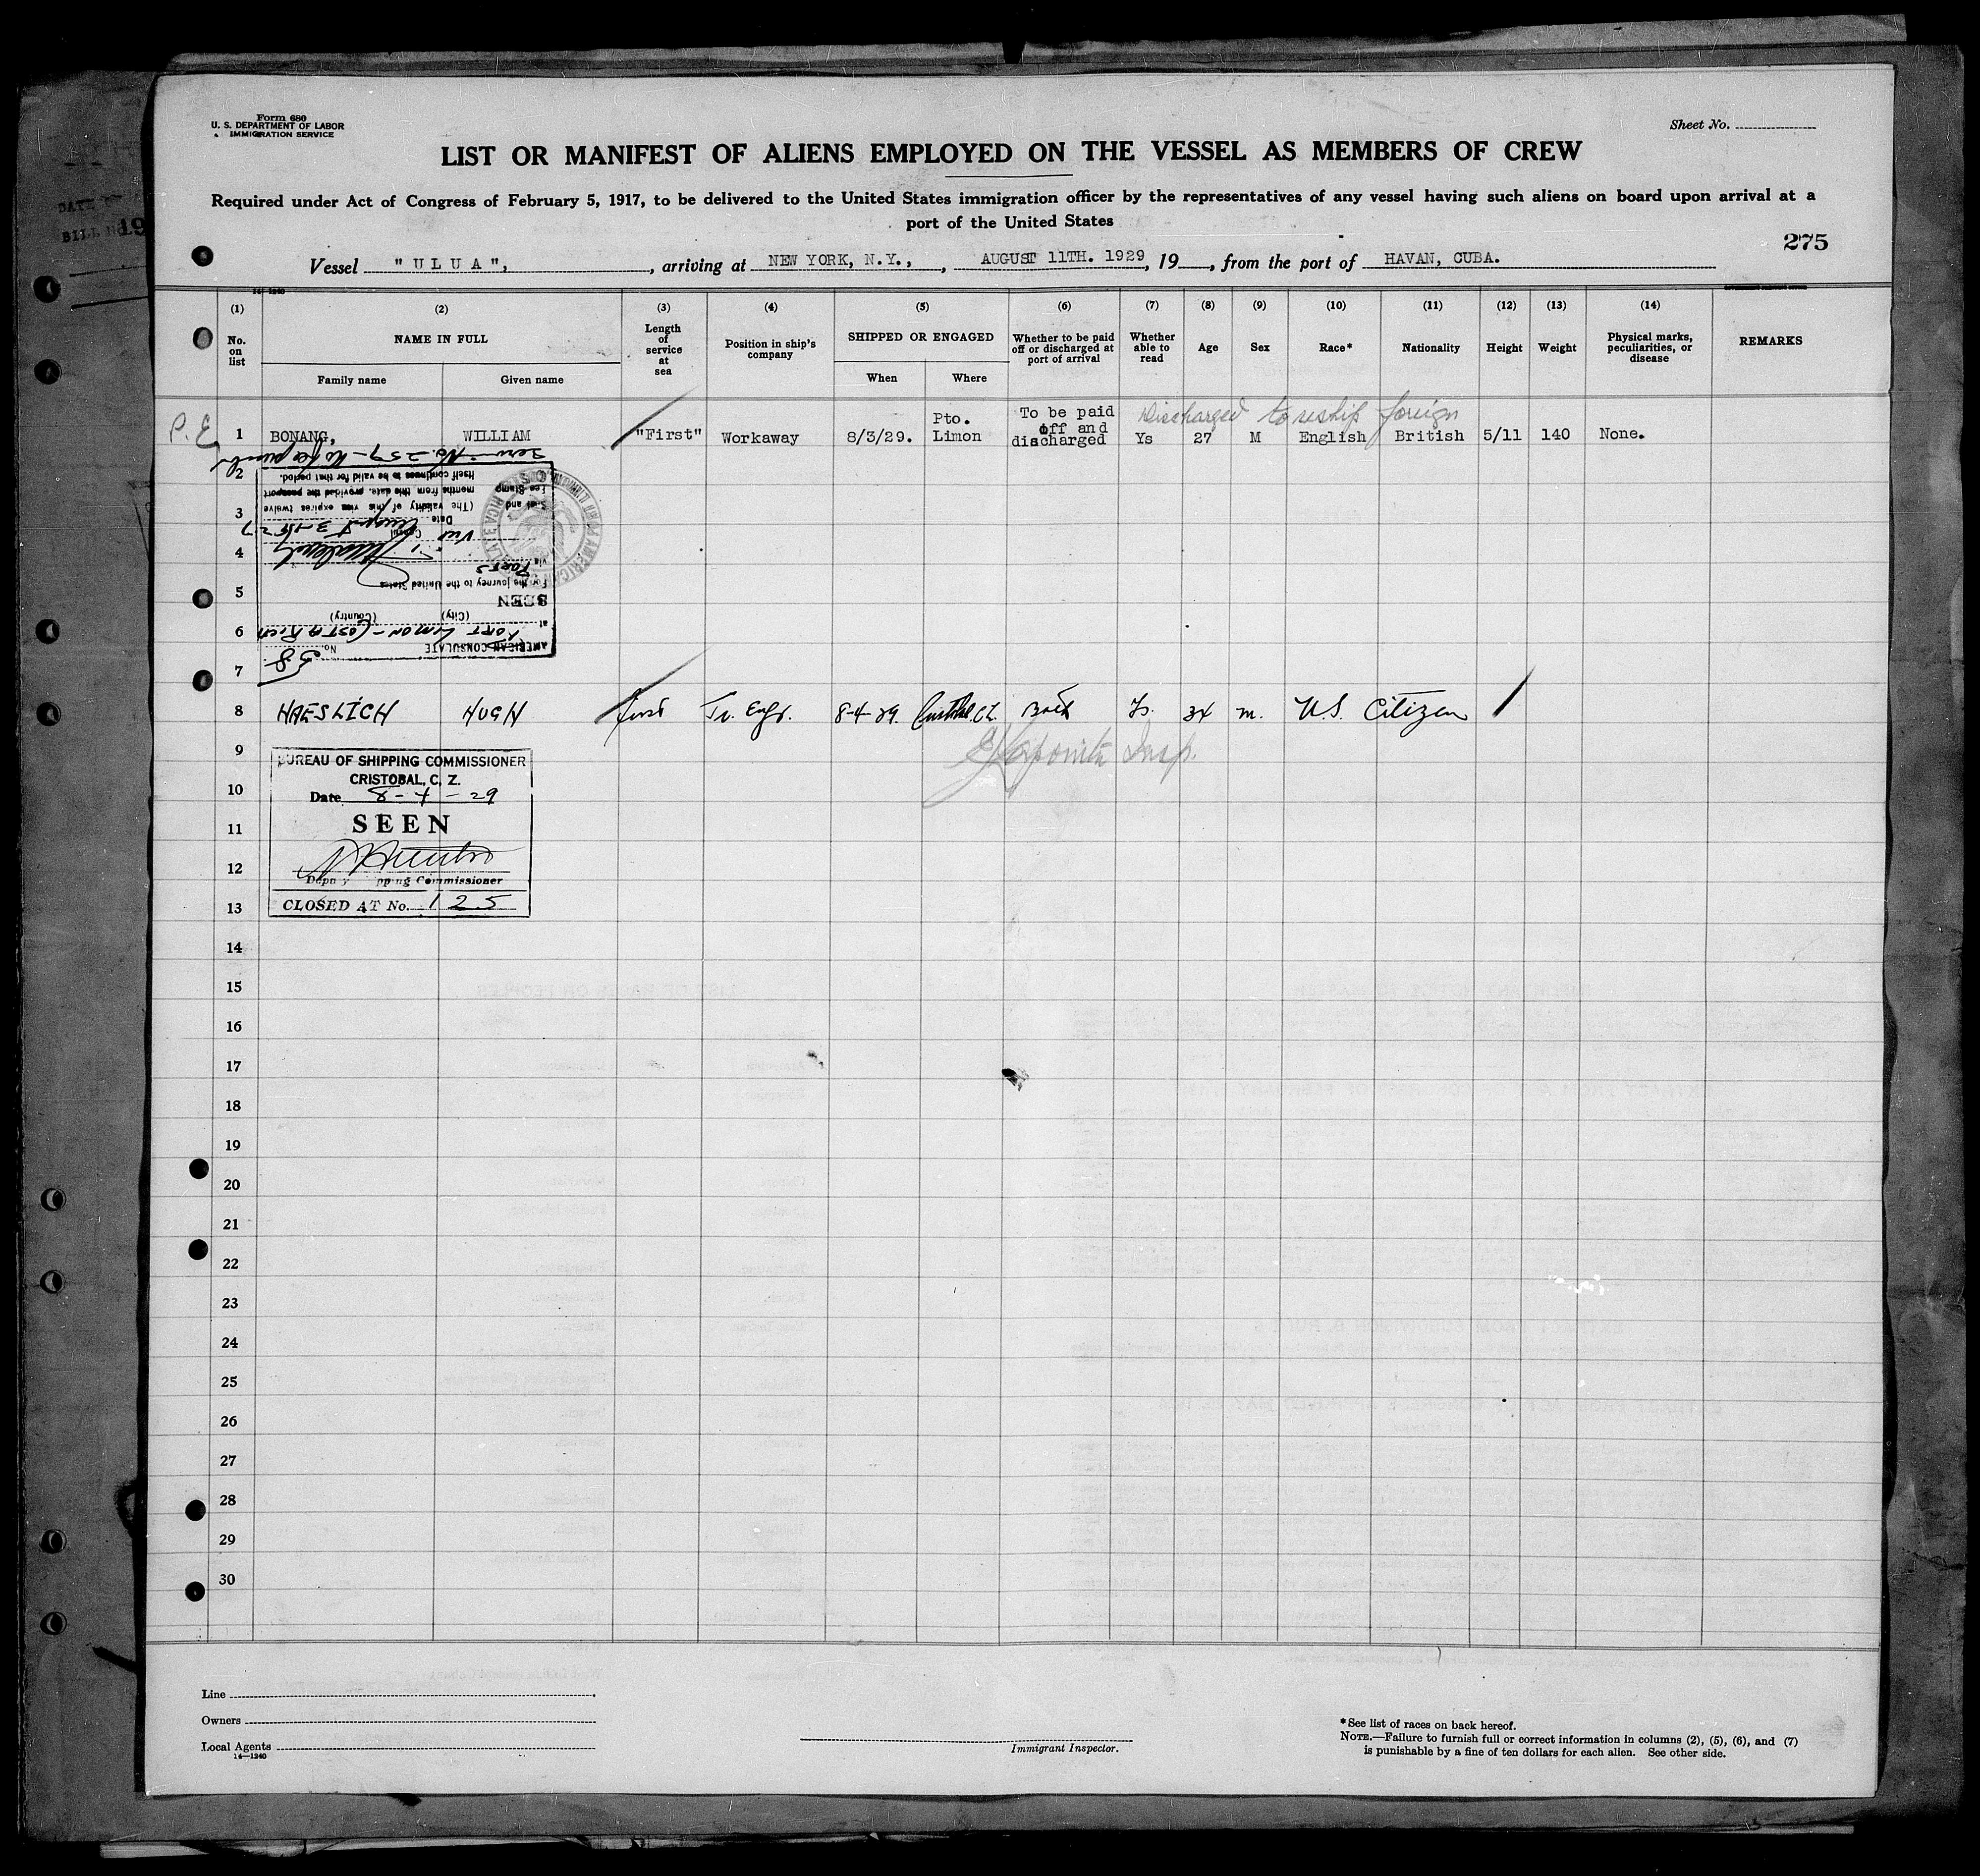 Form 680
U. S. DEPARTMENT OF LABOR
IMMIGRATION SERVICE
Sheet No.
LIST OR MANIFEST OF ALIENS EMPLOYED ON THE VESSEL AS MEMBERS OF CREW
Required under Act of Congress of February 5, 1917, to be delivered to the United States immigration officer by the representatives of any vessel having such aliens on board upon arrival at a
port of the United States
275
Vessel "ULUA", , arriving at NEW YORK, N.Y., , AUGUST 11TH. 1929, 19 , from the port of HAVAN, CUBA.
14-1240
(1) (2) (3) (4) (5) (6) (7) (8) (9) (10) (11) (12) (13) (14)
No. on list
NAME IN FULL
Family name
Given name
Length of service at sea
Position in ship's company
SHIPPED OR ENGAGED
When
Where
Whether to be paid off or discharged at port of arrival
Whether able to read
Age
Sex
Race*
Nationality
Height
Weight
Physical marks, peculiarities, or disease
REMARKS
Discharged to reship foreign
P.E. 1 BONANG, WILLIAM "First" Workaway 8/3/29. Pto. Limon To be paid off and discharged Ys 27 M English British 5/11 140 None.
Serv. No. 259 - No fee
2
3
4
5
6
7
itself continues to be valid for that period.
months from this date, provided the passport
(The validity of this visa expires twelve
Fee Stamp
Seal and
Date August 3-1929
Vice Consul
via PORTS
For the journey to the United States
SEEN
(City) (Country)
at PORT LIMON - COSTA RICA
AMERICAN CONSULATE No. 38
8 HAESLICH HUGH first Jr. Engr. 8-4-29. Cristobal.CZ. Back Ys. 34 m. U.S. Citizen
Insp.
9
BUREAU OF SHIPPING COMMISSIONER
CRISTOBAL, C. Z.
10
Date 8-4-29
11
SEEN
12
Deputy Shipping Commissioner
13
CLOSED AT No. 125
14
15
16
17
18
19
20
21
22
23
24
25
26
27
28
29
30
Line
Owners
Local Agents
14—1240
Immigrant Inspector.
*See list of races on back hereof.
NOTE.—Failure to furnish full or correct information in columns (2), (5), (6), and (7)
is punishable by a fine of ten dollars for each alien. See other side.